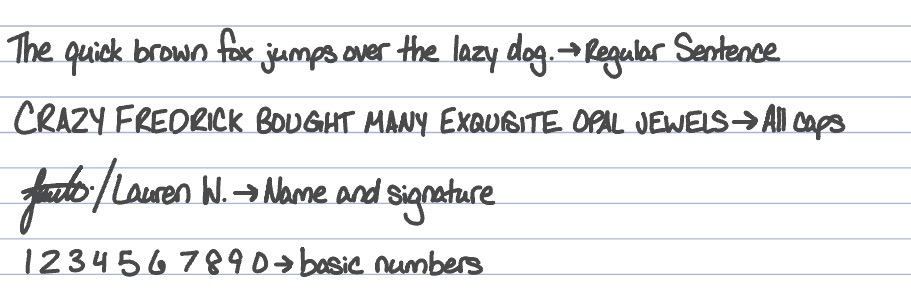 The quick brown fox jumps over the lazy dog. → Regular Sentence
CRAZY FREDRICK BOUGHT MANY EXQUISITE OPAL JEWELS → All caps
/ Lauren W. → Name and signature
1 2 3 4 5 6 7 8 9 0 → basic numbers